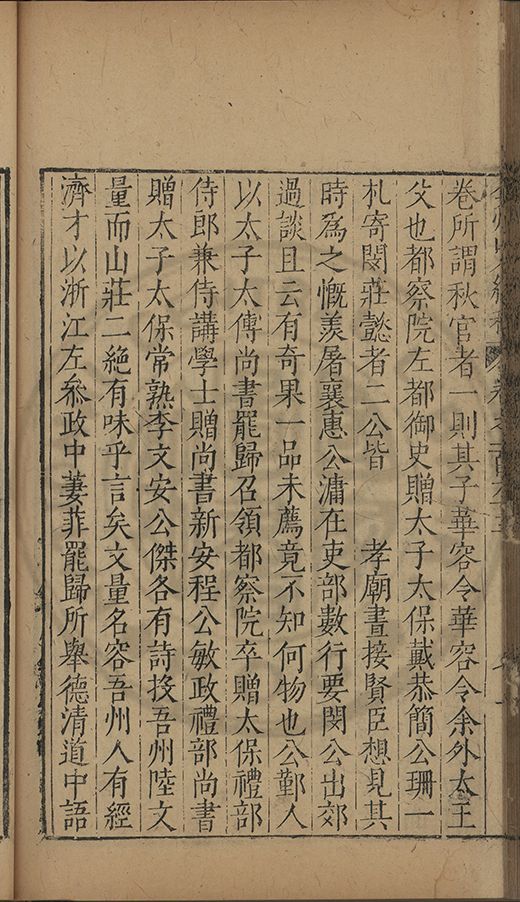 卷所謂秋官者一則其子華容令華容令余外太王
父也都察院左都御史贈太子太保戴恭簡公珊一
札寄閔莊懿者二公皆　孝廟晝接賢臣想見其
時為之慨羨屠襄惠公滽在吏部數行要閔公出郊
過談且云有奇果一品未薦竟不知何物也公鄞人
以太子太傅尚書罷歸召領都察院卒贈太保禮部
侍郎兼侍講學士贈尚書新安程公敏政禮部尚書
贈太子太保常熟李文安公傑各有詩投吾州陸文
量而山莊二絶有味乎言矣文量名容吾州人有經
濟才以浙江左叅政中萋菲罷歸所舉德清道中語